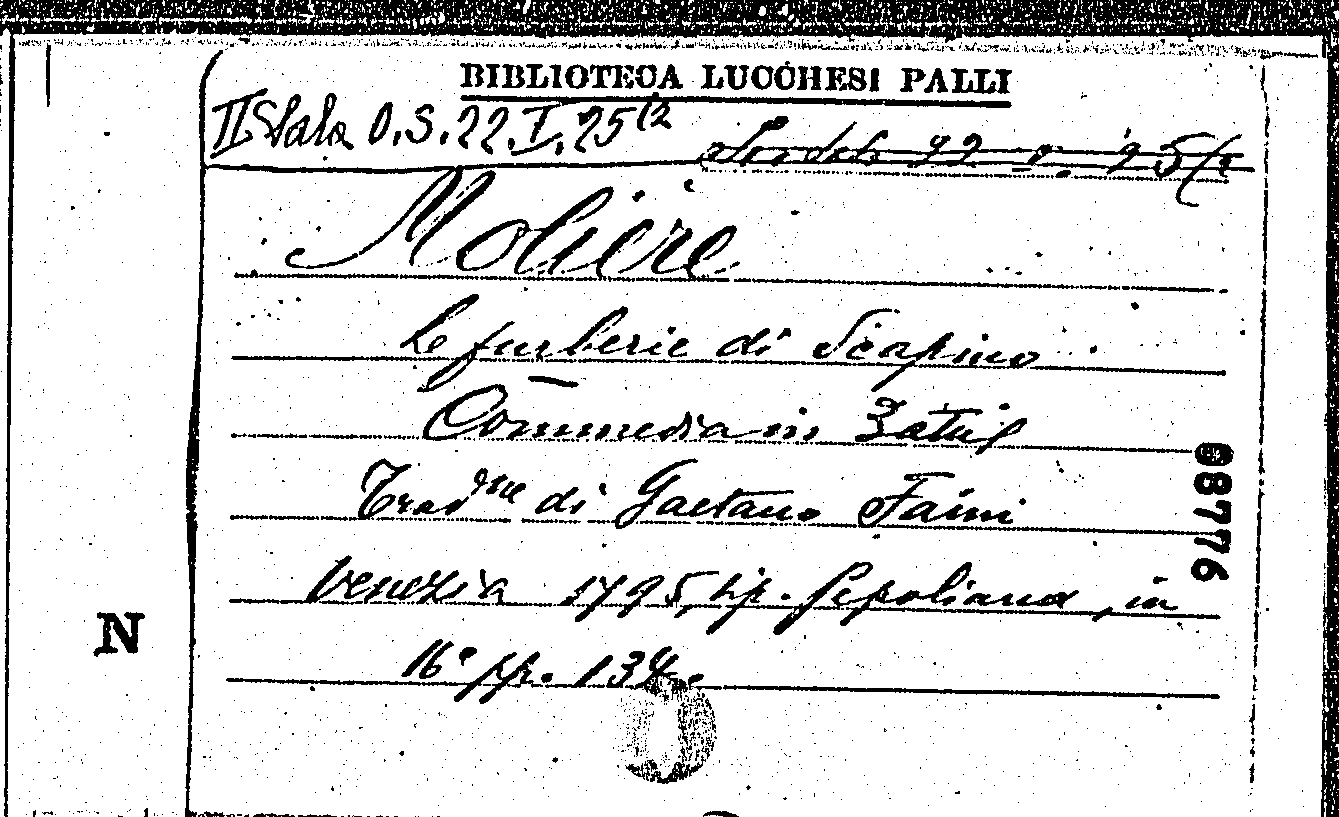 BIBLIOTECA LUCCHESI PALLI
II Sala O.S. 22. I. 25(2
22 25(
Molière
Le furberie di Scapino
Commedia in 3 atti
Trad.ne di Gaetano Faini
Venezia 1795, tip. Pepoliana, in
16° pp. 134.
08776
N